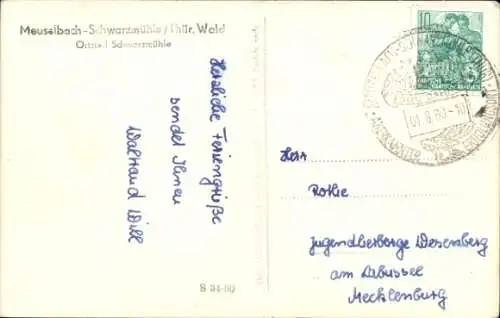 Meuselbach-Schwarzmühle/Thür. Wald
Ortsteil Schwarzmühle
Herzliche Feriengrüße
sendet Ihnen
Waltraud Will
S 34-60
10
01.8.60-10
Herr
Rothe
Jugendherberge Wesenberg
am Labussee
Mecklenburg